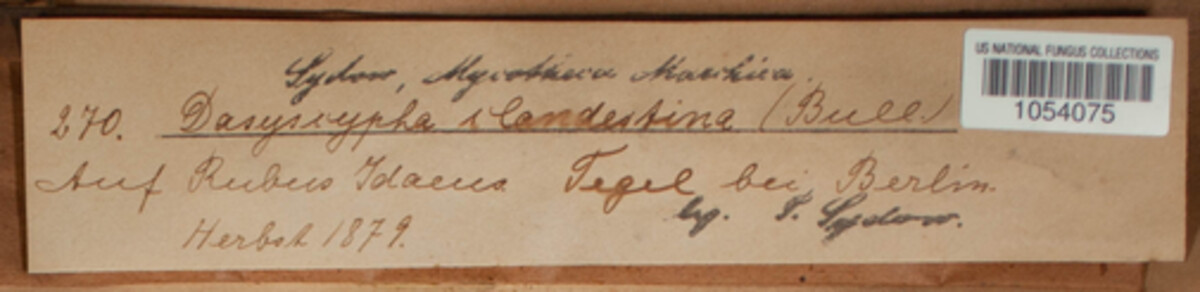 Sydow, Mycotheca Marchica.
US NATIONAL FUNGUS COLLECTIONS
1054075
270. Dasyscypha clandestina (Bull.)
Auf Rubus Idaeus Tegel bei Berlin.
leg. P. Sydow.
Herbst 1879.